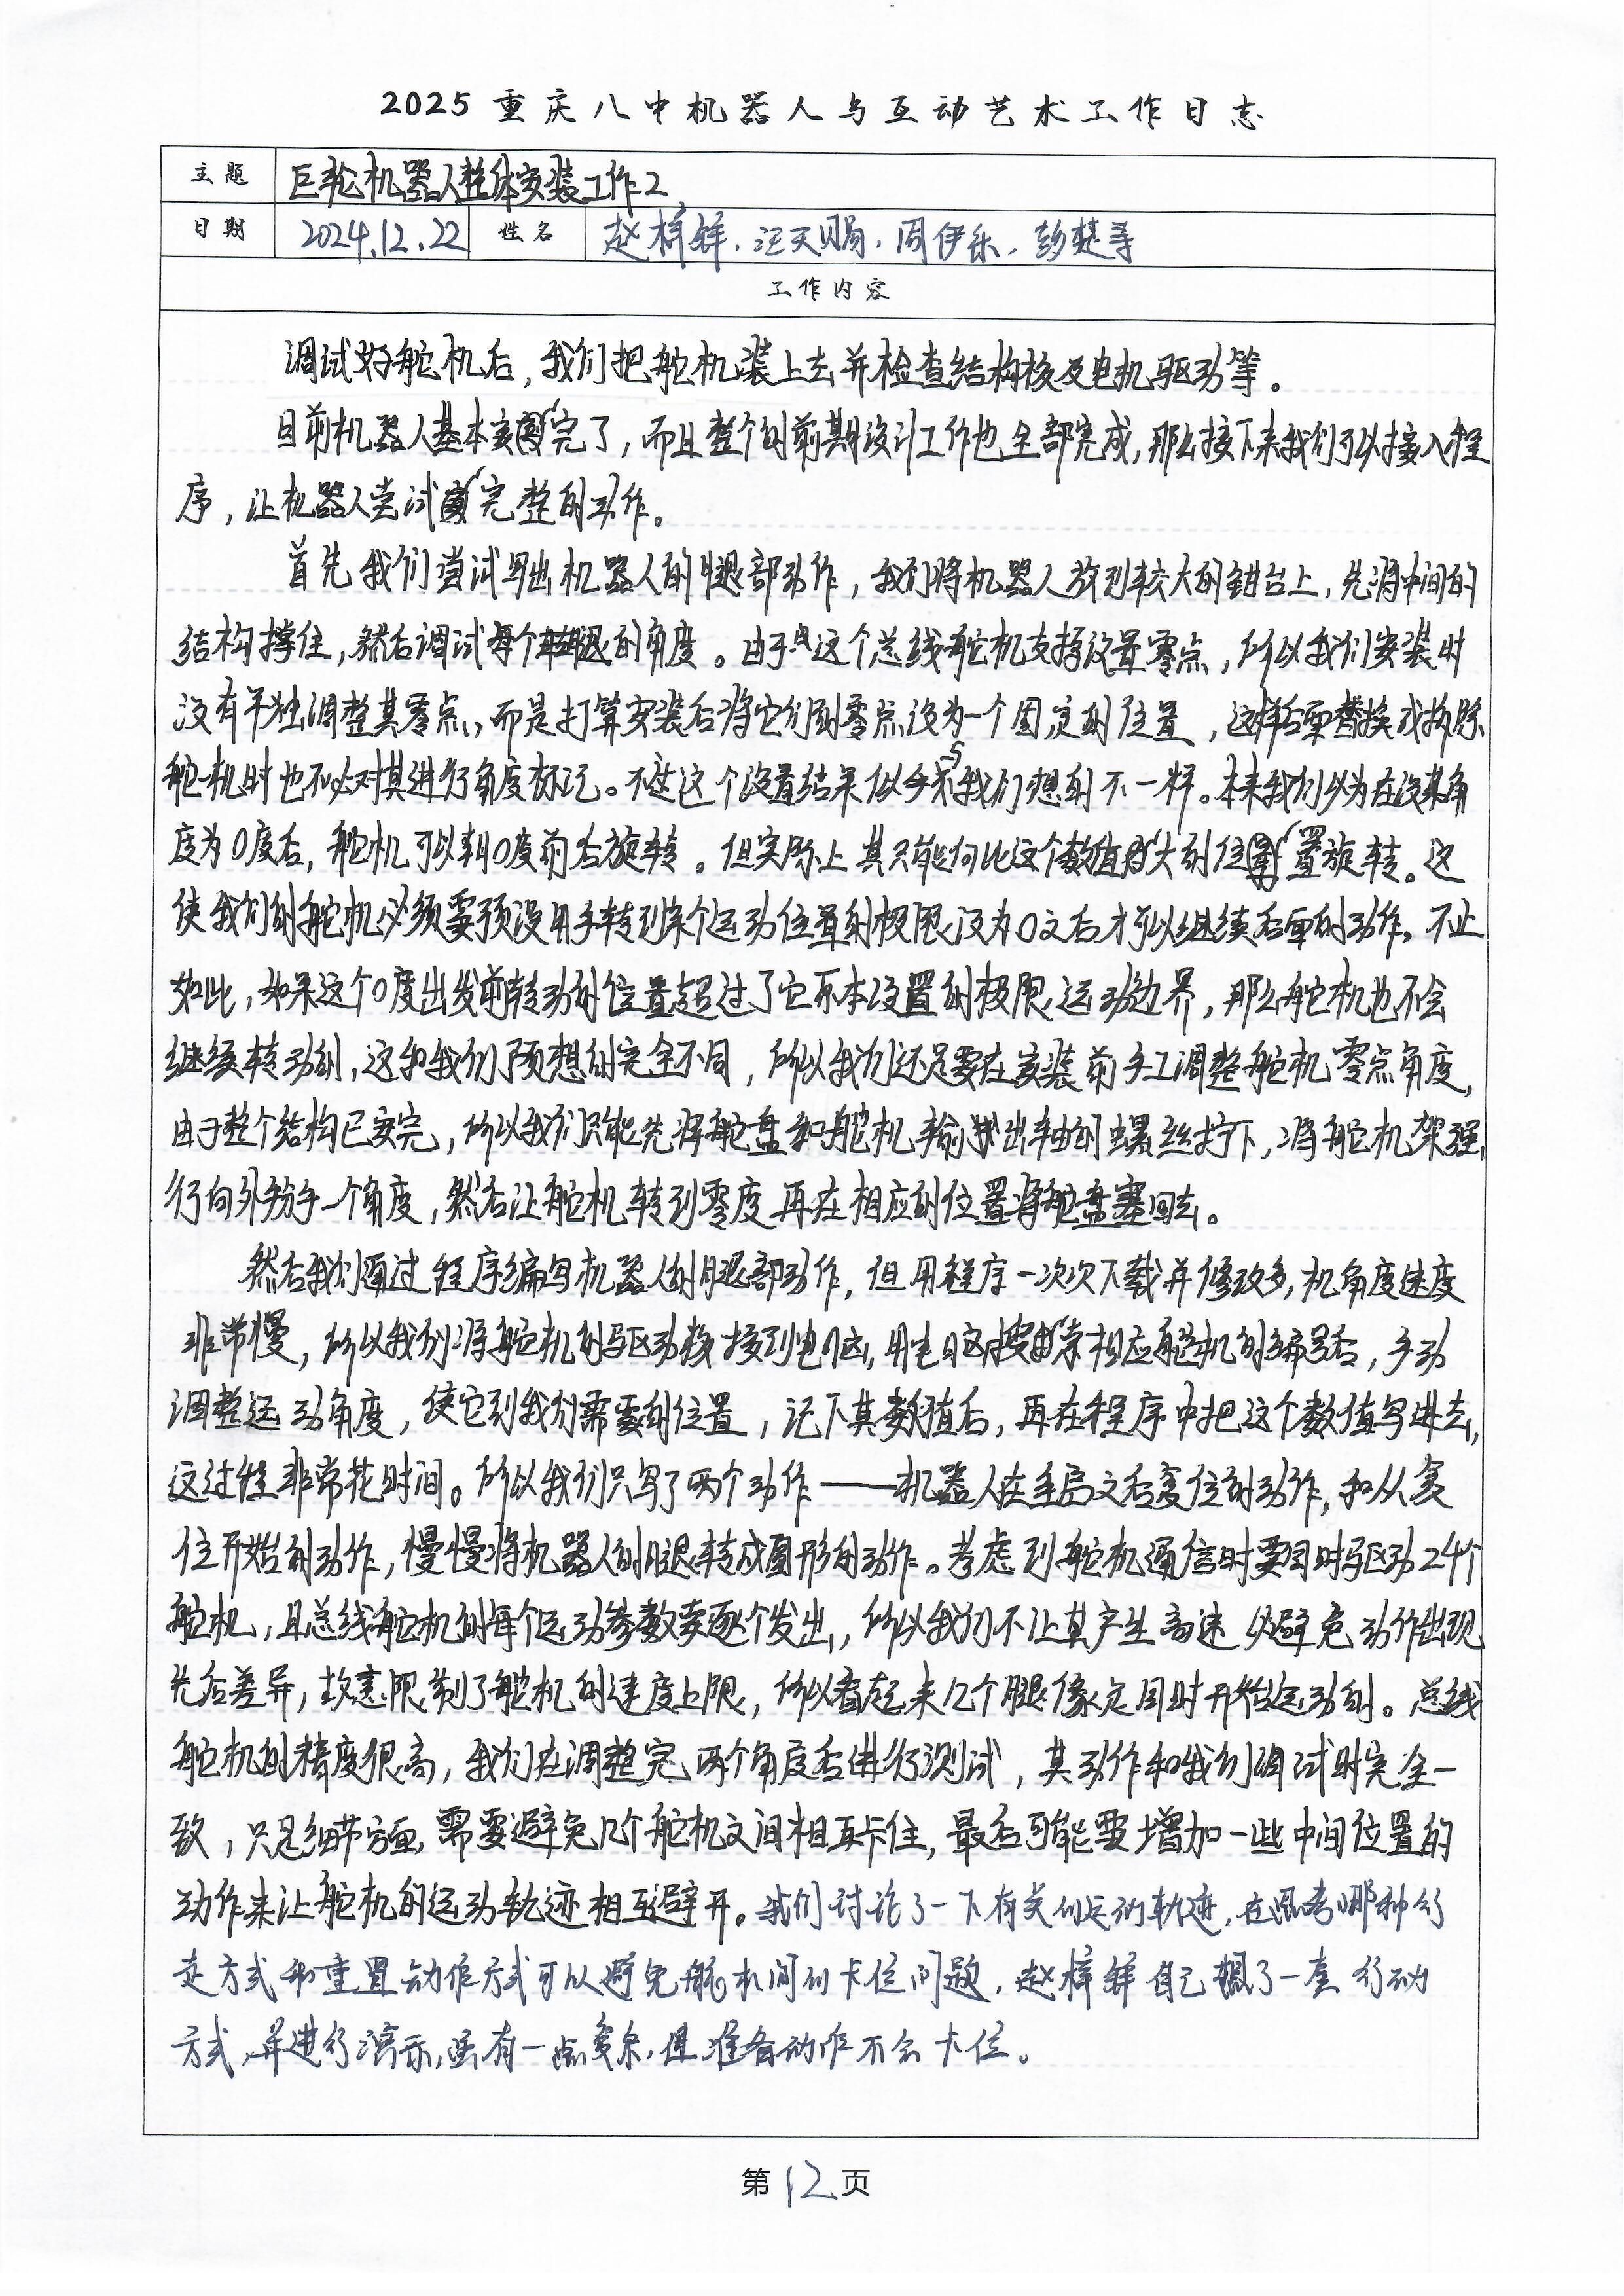 2025重庆八中机器人与互动艺术工作日志
主题 巨轮机器人整体安装工作2
日期 2024.12.22 姓名 赵梓鲜.汪天赐.周伊乐.彭楚寻
工作内容
调试好舵机后,我们把舵机装上去并检查结构核及电机驱动等。
目前机器人基本安完了,而且整个的前期设计工作也全部完成,那么接下来我们可以接入程
序,让机器人尝试完整的动作。
首先我们尝试写出机器人的腿部动作,我们将机器人放到较大的钳台上,先将中间的
结构撑住,然后调试每个腿的角度。由于这个总线舵机支持设置零点,所以我们安装时
没有单独调整其零点,而是打算安装后将它们的零点设为一个固定的位置,这样后要替换或拆除
舵机时也不必对其进行角度标记。不过这个设置结果似乎和我们想的不一样。本来我们以为在设某角
度为0度后,舵机可以朝0度前后旋转。但实际上其只能向比这个数值大的位置旋转。这
使我们的舵机必须要预设用手转到某个运动位置的极限设为0之后才可以继续后面的动作。不止
如此,如果这个0度出发前转动的位置超过了它原本设置的极限运动边界,那么舵机也不会
继续转动的,这和我们预想的完全不同,所以我们还是要在安装前手工调整舵机零点角度,
由于整个结构已安完,所以我们只能先将舵盘和舵机输出轴的螺丝拧下,将舵机架强
行向外掰一个角度,然后让舵机转到零度再在相应的位置将舵盘塞回去。
然后我们通过程序编写机器人的腿部动作,但用程序一次次下载并修改多,机角度速度
非常慢,所以我们将舵机的驱动核接到电脑,用电脑搜索相应舵机的编号后,手动
调整运动角度,使它到我们需要的位置,记下其数值后,再在程序中把这个数值写进去,
这过程非常花时间。所以我们只写了两个动作——机器人在重启之后复位的动作,和从复
位开始的动作,慢慢将机器人的腿转成圆形的动作。考虑到舵机通信时要同时驱动24个
舵机,且总线舵机的每个运动参数要逐个发出,所以我们不让其产生高速以避免动作出现
先后差异,故意限制了舵机的速度上限,所以看起来几个腿像是同时开始运动的。总线
舵机的精度很高,我们在调整完两个角度后进行测试,其动作和我们调试时完全一
致,只是细节方面,需要避免几个舵机之间相互卡住,最后可能要增加一些中间位置的
动作来让舵机的运动轨迹相互避开。我们讨论了一下有关的轨迹,在思考哪种行
走方式和重置动作方式可以避免舵机间的卡位问题.赵梓鲜自己想了一套行动
方式,并进行演示,虽有一点复杂,但准备动作不会卡位。
第12页